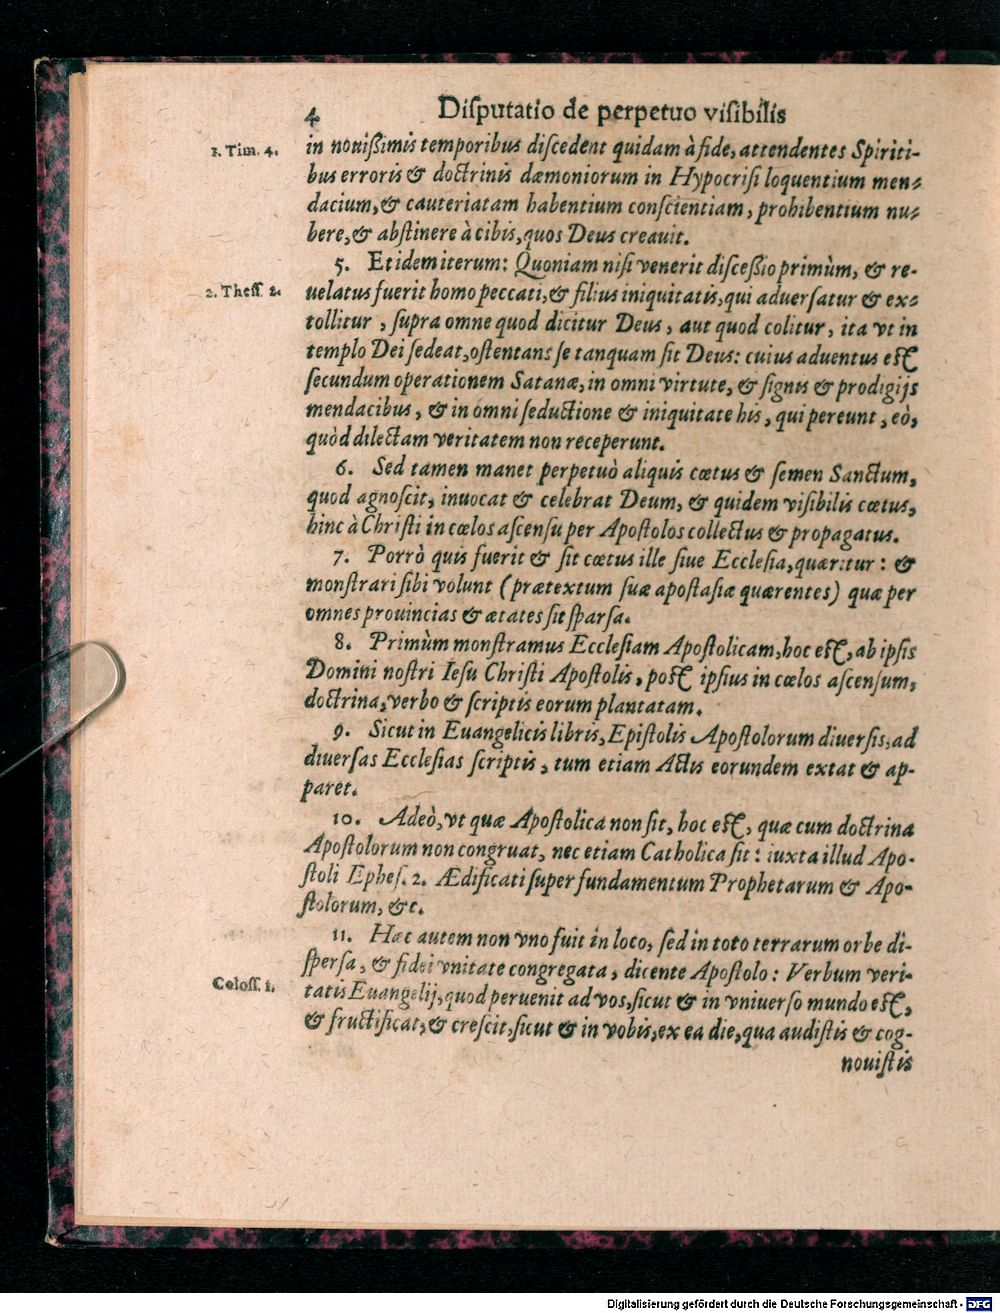 4 Diſputatio de perpetuo viſibilis
1. Tim. 4. in nouißimis temporibus diſcedent quidam à fide, attendentes Spiriti-
bus erroris & doctrinis dæmoniorum in Hypocriſi loquentium men-
dacium, & cauteriatam habentium conſcientiam, prohibentium nu-
bere, & abſtinere à cibis, quos Deus creauit.
5. Et idem iterum: Quoniam niſi venerit diſceßio primùm, & re-
2. Theſſ. 2. uelatus fuerit homo peccati, & filius iniquitatis, qui aduerſatur & ex-
tollitur, ſupra omne quod dicitur Deus, aut quod colitur, ita vt in
templo Dei ſedeat, oſtentans ſe tanquam ſit Deus: cuius aduentus eſt
ſecundum operationem Satanæ, in omni virtute, & ſignis & prodigijs
mendacibus, & in omni ſeductione & iniquitate his, qui pereunt, eò,
quòd dilectam veritatem non receperunt.
6. Sed tamen manet perpetuò aliquis cœtus & ſemen Sanctum,
quod agnoſcit, inuocat & celebrat Deum, & quidem viſibilis cœtus,
hinc à Chriſti in cœlos aſcenſu per Apoſtolos collectus & propagatus.
7. Porrò quis fuerit & ſit cœtus ille ſiue Eccleſia, quæritur: &
monſtrari ſibi volunt (prætextum ſuæ apoſtaſiæ quærentes) quæ per
omnes prouincias & ætates ſit ſparſa.
8. Primùm monſtramus Eccleſiam Apoſtolicam, hoc eſt, ab ipſis
Domini noſtri Ieſu Chriſti Apoſtolis, poſt ipſius in cœlos aſcenſum,
doctrina, verbo & ſcriptis eorum plantatam.
9. Sicut in Euangelicis libris, Epiſtolis Apoſtolorum diuerſis, ad
diuerſas Eccleſias ſcriptis, tum etiam Actis eorundem extat & ap-
paret.
10. Adeò, vt quæ Apoſtolica non ſit, hoc eſt, quæ cum doctrina
Apoſtolorum non congruat, nec etiam Catholica ſit: iuxta illud Apo-
ſtoli Epheſ. 2. Ædificati ſuper fundamentum Prophetarum & Apo-
ſtolorum, &c.
11. Hæc autem non vno fuit in loco, ſed in toto terrarum orbe di-
ſperſa, & fidei vnitate congregata, dicente Apoſtolo: Verbum veri-
Coloſſ. 1. tatis Euangelij, quod peruenit ad vos, ſicut & in vniuerſo mundo eſt,
& fructificat, & creſcit, ſicut & in vobis, ex ea die, qua audiſtis & cog-
nouiſtis
Digitalisierung gefördert durch die Deutsche Forschungsgemeinschaft - DFG